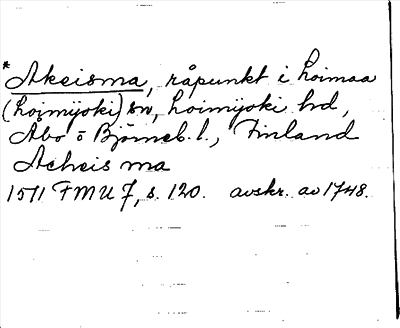 * Akeisma, råpunkt i Loimaa
(Loimijoki) sn, Loimijoki hd,
Åbo o Björneb. l., Finland
Acheis ma
1511 FMU 7, s. 120. avskr. av 1748.